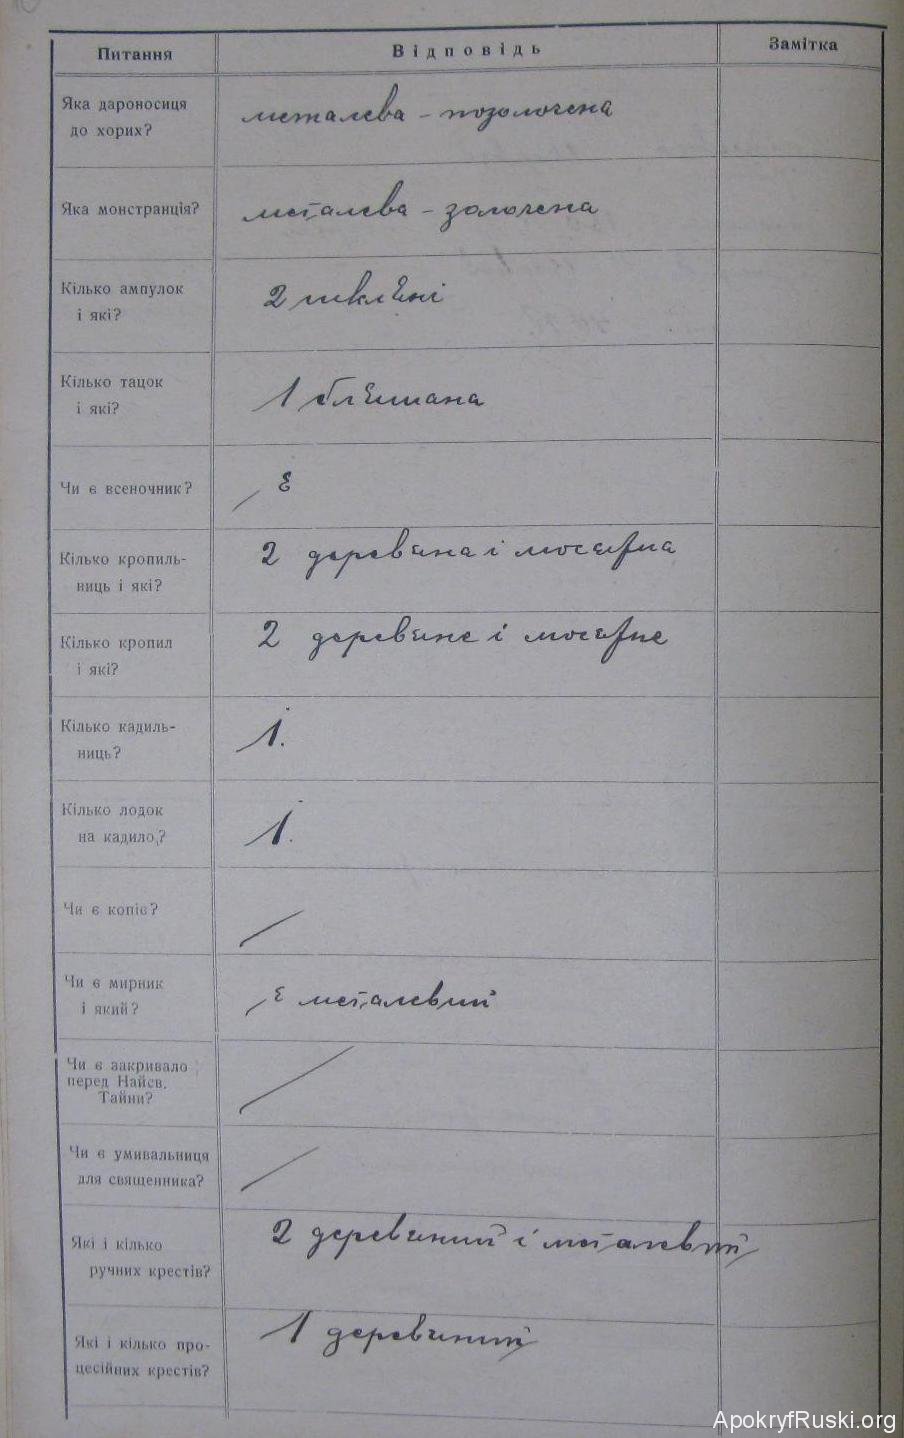 Питання Відповідь Замітка
Яка дароносиця
до хорих?
металева - позолочена
Яка монстранція?
металева - золочена
Кілько ампулок
і які?
2 шклЄні
Кілько тацок
і які?
1 блЄшана
Чи є всеночник?
є
Кілько кропиль-
ниць і які?
2 деревяна і мосяжна
Кілько кропил
і які?
2 деревяне і мосяжне
Кілько кадиль-
ниць?
1.
Кілько лодок
на кадило?
1.
Чи є копіє?
Чи є мирник
і який?
є металевий
Чи є закривало
перед Найсв.
Тайни?
Чи є умивальниця
для священника?
Які і кілько
ручних крестів?
2 деревяний і металевий
Які і кілько про-
цесійних крестів?
1 деревяний
ApokryfRuski.org